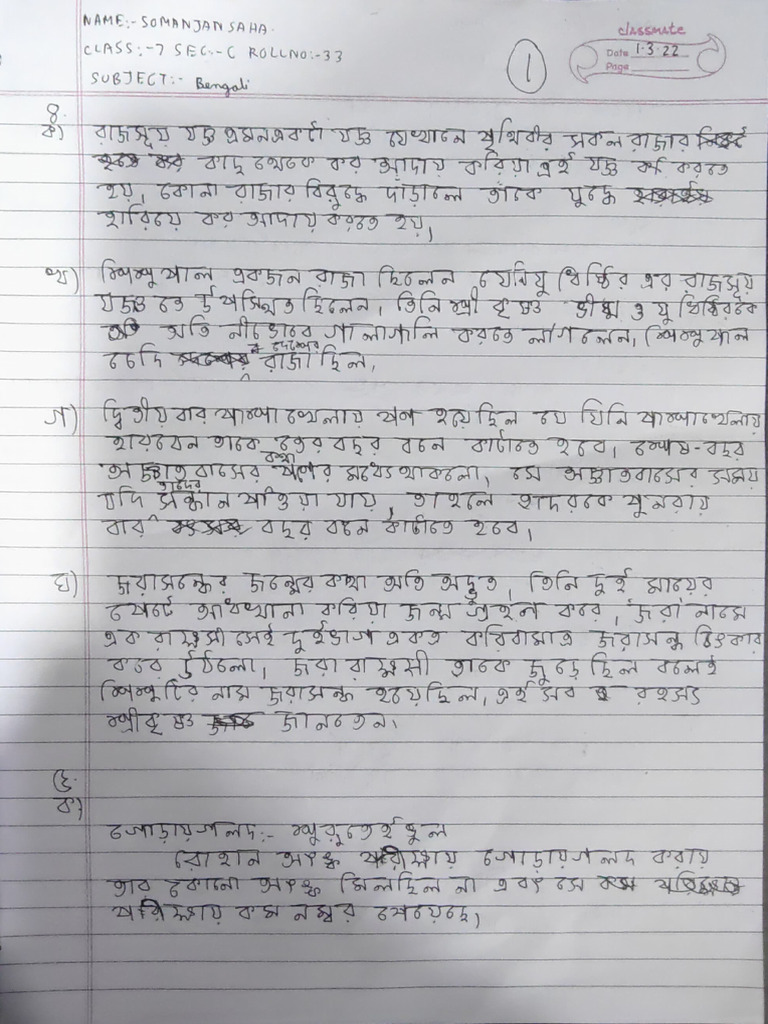 NAME:- SOMANJAN SAHA.
CLASS:-7 SEC:-C ROLLNO:-33
SUBJECT:- Bengali
classmate
Date 1.3.22
Page
1
৪.
ক) রাজসূয় যজ্ঞ এমন একটা যজ্ঞ যেখানে পৃথিবীর সকল রাজার
কাছ থেকে কর আদায় করিয়া এই যজ্ঞ করতে
হয়, কোনা রাজার বিরুদ্ধে দাঁড়ালে তাঁকে যুদ্ধে
হারিয়ে কর আদায় করতে হয়,
খ) শিশুপাল একজন রাজা ছিলেন যেনি যুধিষ্ঠির এর রাজসূয়
যজ্ঞ তে উপস্থিত ছিলেন, তিনি শ্রী কৃষ্ণ ভীষ্ম ও যুধিষ্ঠিরকে
অতি নীচভাবে গালাগালি করতে লাগলেন, শিশুপাল
চেদি দেশের রাজা ছিল,
গ) দ্বিতীয় বার পাশা খেলায় পণ হয়েছিল যে যিনি পাশাখেলায়
হারবেন তাকে তের বছর বনে কাটাতে হবে, শেষ-বছর
অজ্ঞাত বাসের কথা পণের মধ্যে থাকলো, সে অজ্ঞাতবাসের সময়
যদি তাদের সন্ধান পাওয়া যায়, তাহলে তাদেরকে পুনরায়
বার বছর বনে কাটাতে হবে,
ঘ) জরাসন্ধের জন্মের কথা অতি অদ্ভুত, তিনি দুই মায়ের
পেটে আধখানা করিয়া জন্ম গ্রহন করে, জরা নামে
এক রাক্ষসী সেই দুইভাগ একত করিবামাত্র জরাসন্ধ চিৎকার
করে উঠলো, জরা রাক্ষসী তাকে জুড়েছিল বলেই
শিশুটির নাম জরাসন্ধ হয়েছিল, এই সব রহস্য
শ্রীকৃষ্ণ জানতেন,
৫.
ক)
গোড়ায়গলদ:- শুরুতেই ভুল
রোহান অংঙ্ক পরীক্ষায় গোড়ায়গলদ করায়
তার কোনো অংঙ্ক মিলছিল না এবং সে
পরীক্ষায় কম নম্বর পেয়েছে,